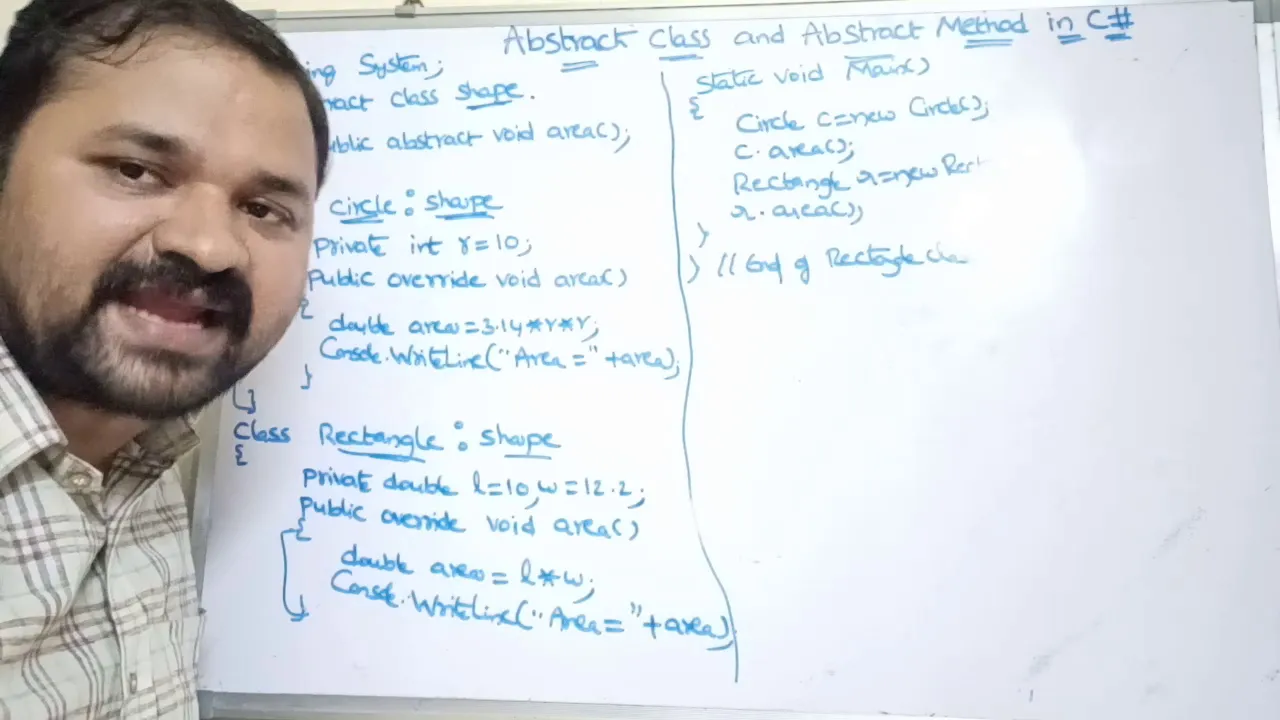 Abstract Class and Abstract Method in C#
ing System;
ract class shape.
ublic abstract void area();
circle : shape
private int r=10;
public override void area()
{
double area=3.14*r*r;
Console.WriteLine("Area="+area);
}
}
Class Rectangle : shape
{
private double l=10,w=12.2;
public override void area()
{
double area=l*w;
Console.WriteLine("Area="+area)
}
Static void Main()
{
Circle c=new Circle();
c.area();
Rectangle r=new Rect
r.area();
}
} // End of Rectangle cla